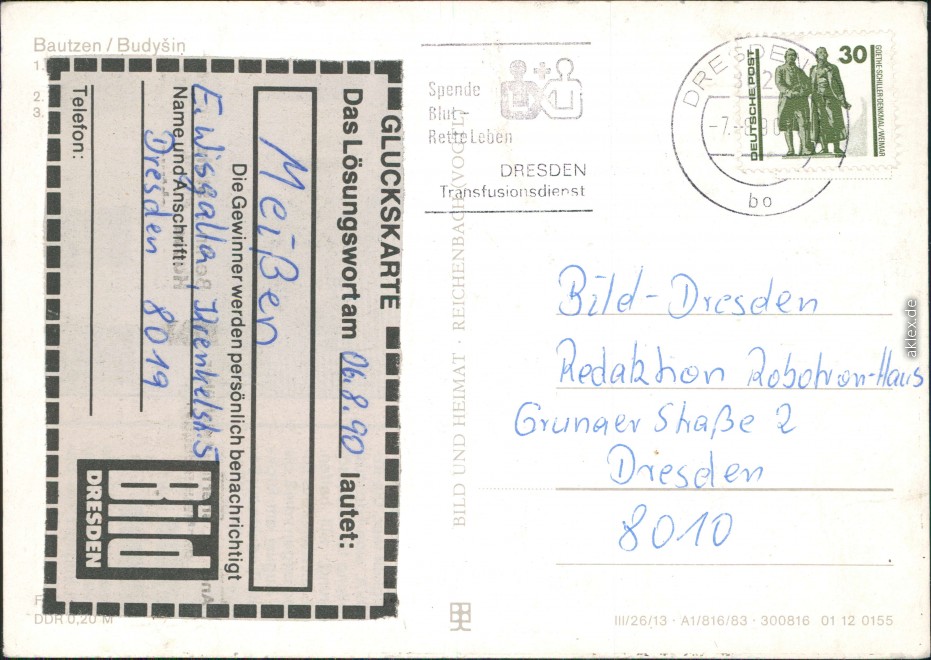 Bautzen / Budyšin
1.
2.
3.
GLÜCKSKARTE
Das Lösungswort am 06.8.90 lautet:
Meißen
Die Gewinner werden persönlich benachrichtigt
E. Wisgalla,
Name und Anschrift:
Dresden 8019
Telefon:
Bild
DRESDEN
DDR 0,20 M
Spende
Blut -
Rette Leben
DRESDEN
Transfusionsdienst
DRESDEN
bo
30
DEUTSCHE POST
GOETHE-SCHILLER-DENKMAL/WEIMAR
BILD UND HEIMAT · REICHENBACH (VOGTL)
Bild-Dresden
Redaktion Robotron-Haus
Grunaer Straße 2
Dresden
8010
III/26/13 · A1/816/83 · 300816 01 12 0155
akpool.de